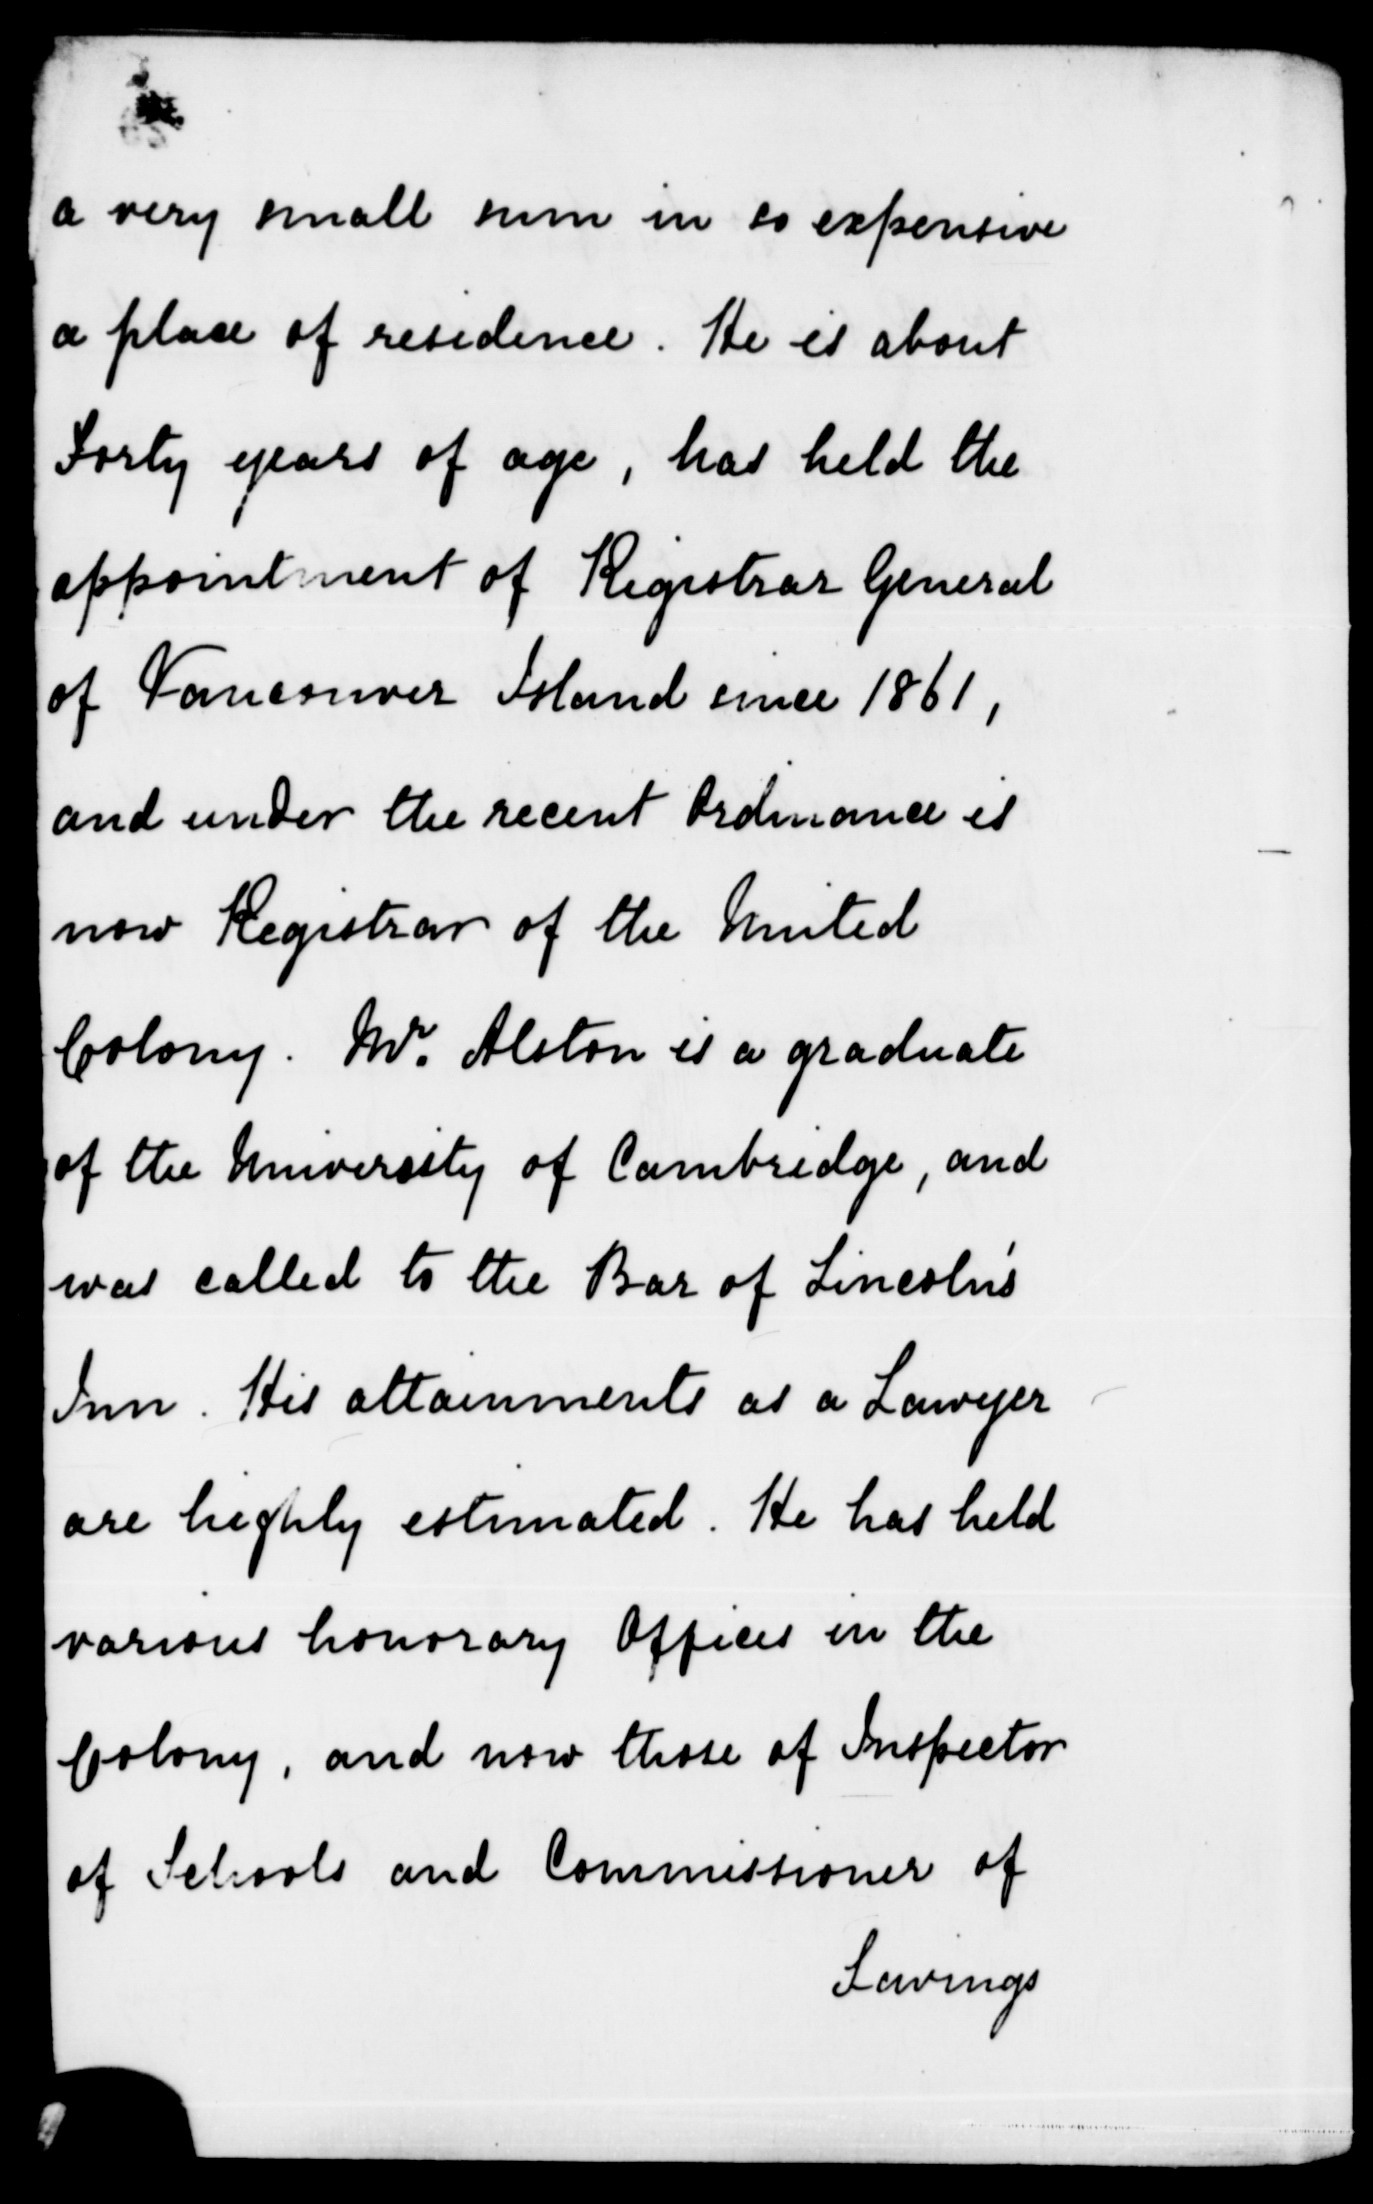 a very small sum in so expensive
a place of residence. He is about
Forty years of age, has held the
appointment of Registrar General
of Vancouver Island since 1861,
and under the recent Ordinance is
now Registrar of the United
Colony. Mr. Alston is a graduate
of the University of Cambridge, and
was called to the Bar of Lincoln's
Inn. His attainments as a Lawyer
are highly estimated. He has held
various honorary Offices in the
Colony, and now those of Inspector
of Schools and Commissioner of
Savings